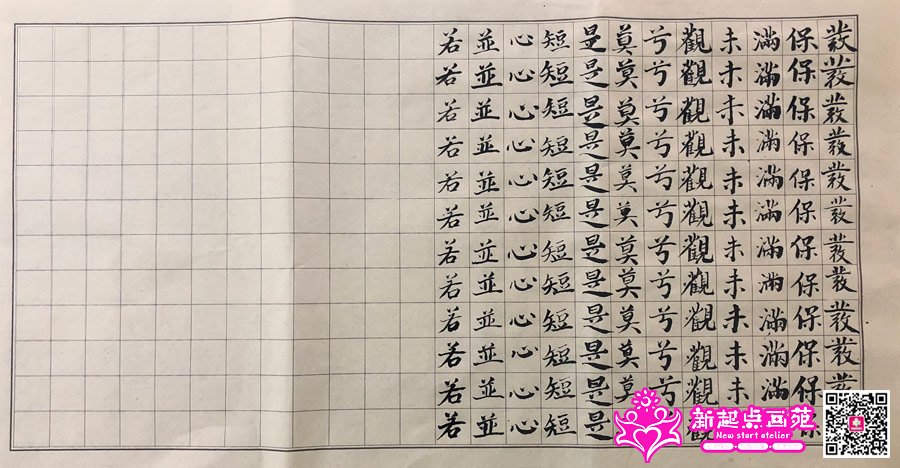 發發發發發發發發發發發
保保保保保保保保保保保保
滿滿滿滿滿滿滿滿滿滿滿
未未未未未未未未未未未
觀觀觀觀觀觀觀觀觀觀觀觀
兮兮兮兮兮兮兮兮兮兮兮
莫莫莫莫莫莫莫莫莫莫莫
是是是是是是是是是是是是
短短短短短短短短短短短短
心心心心心心心心心心心心
並並並並並並並並並並並並
若若若若若若若若若若若若
新起点画苑
New start atelier